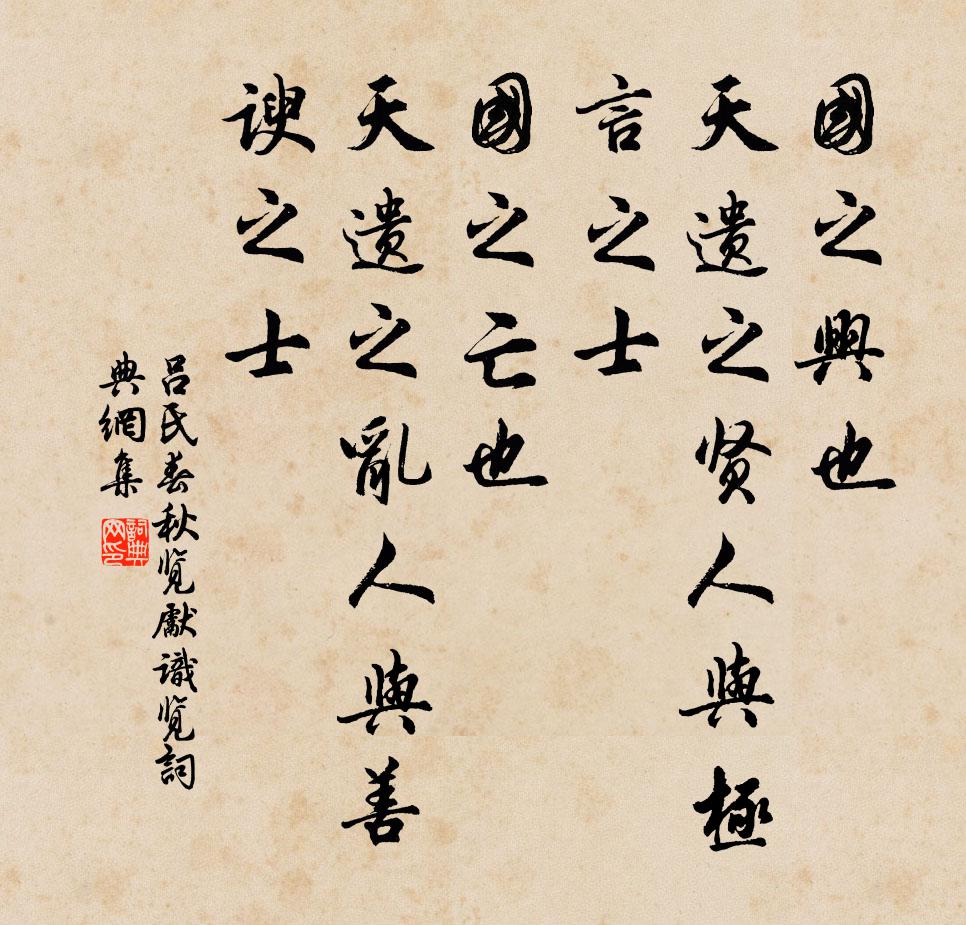 國之興也
天遺之贤人與極
言之士
國之亡也
天遺之亂人與善
諛之士
呂氏春秋览獻識览詞
典網集
詞典网印